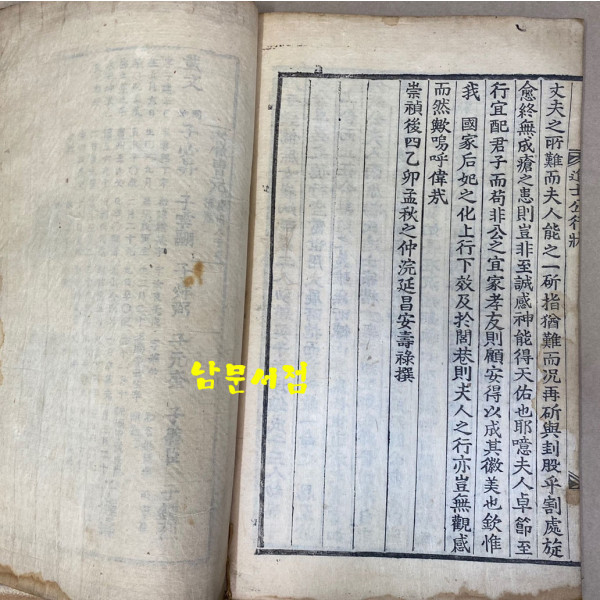 進士公行狀
丈夫之所難而夫人能之一斫指猶難而况再斫與刲股乎割處旋
愈終無成瘡之患則豈非至誠感神能得天佑也耶噫夫人卓節至
行宜配君子而苟非公之宜家孝友則顧安得以成其徽美也欽惟
我 國家后妃之化上行下效及於閭巷則夫人之行亦豈無觀感
而然歟嗚呼偉哉
崇禎後四乙卯孟秋之仲浣延昌安壽祿撰
남문서점